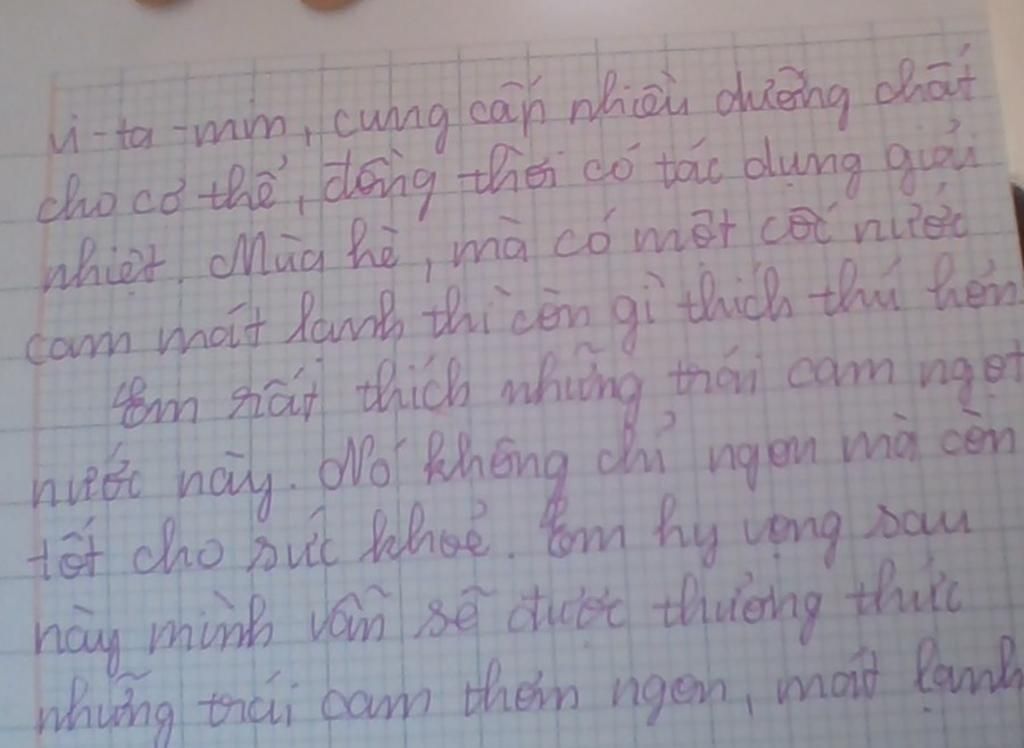 vi-ta-min, cung cấp nhiều dưỡng chất
cho cơ thể, đồng thời có tác dụng giải
nhiệt. Mùa hè, mà có một cốc nước
cam mát lạnh thì còn gì thích thú hơn.
Em rất thích những trái cam ngọt
nước này. Nó không chỉ ngon mà còn
tốt cho sức khoẻ. Em hy vọng sau
này mình vẫn sẽ được thưởng thức
những trái cam thơm ngon, mát lạnh